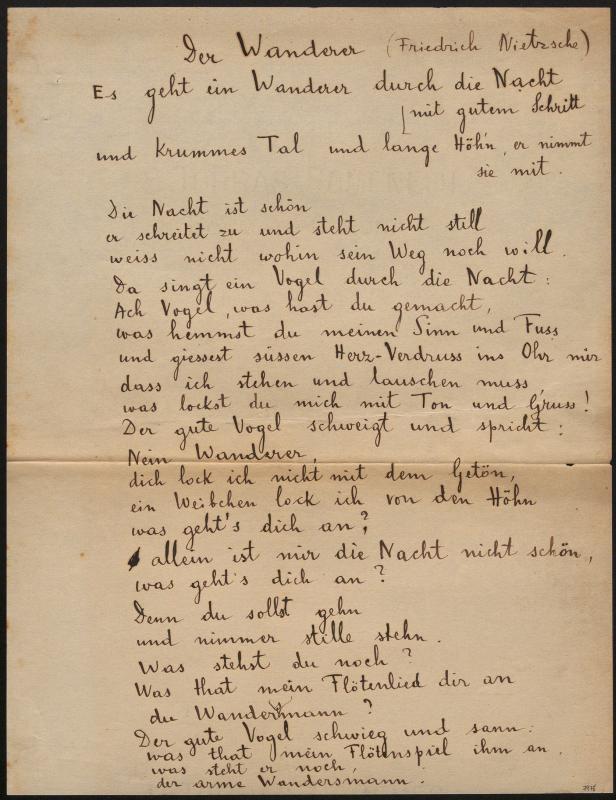 Der Wanderer (Friedrich Nietzsche)
Es geht ein Wanderer durch die Nacht
mit gutem Schritt
und krummes Tal und lange Höh'n, er nimmt
sie mit.
Die Nacht ist schön
er schreitet zu und steht nicht still
weiss nicht wohin sein Weg noch will.
Da singt ein Vogel durch die Nacht:
Ach Vogel, was hast du gemacht,
was hemmst du meinen Sinn und Fuss
und giessest süssen Herz-Verdruss ins Ohr mir
dass ich stehen und lauschen muss,
was lockst du mich mit Ton und Gruss!
Der gute Vogel schweigt und spricht:
Nein Wanderer,
dich lock ich nicht mit dem Getön,
ein Weibchen lock ich von den Höhn
was geht's dich an?
allein ist mir die Nacht nicht schön,
was geht's dich an?
Denn du sollst gehn
und nimmer stille stehn.
Was stehst du noch?
Was that mein Flötenlied dir an
du Wandersmann?
Der gute Vogel schwieg und sann:
was that mein Flötenspiel ihm an.
was steht er noch,
der arme Wandersmann.